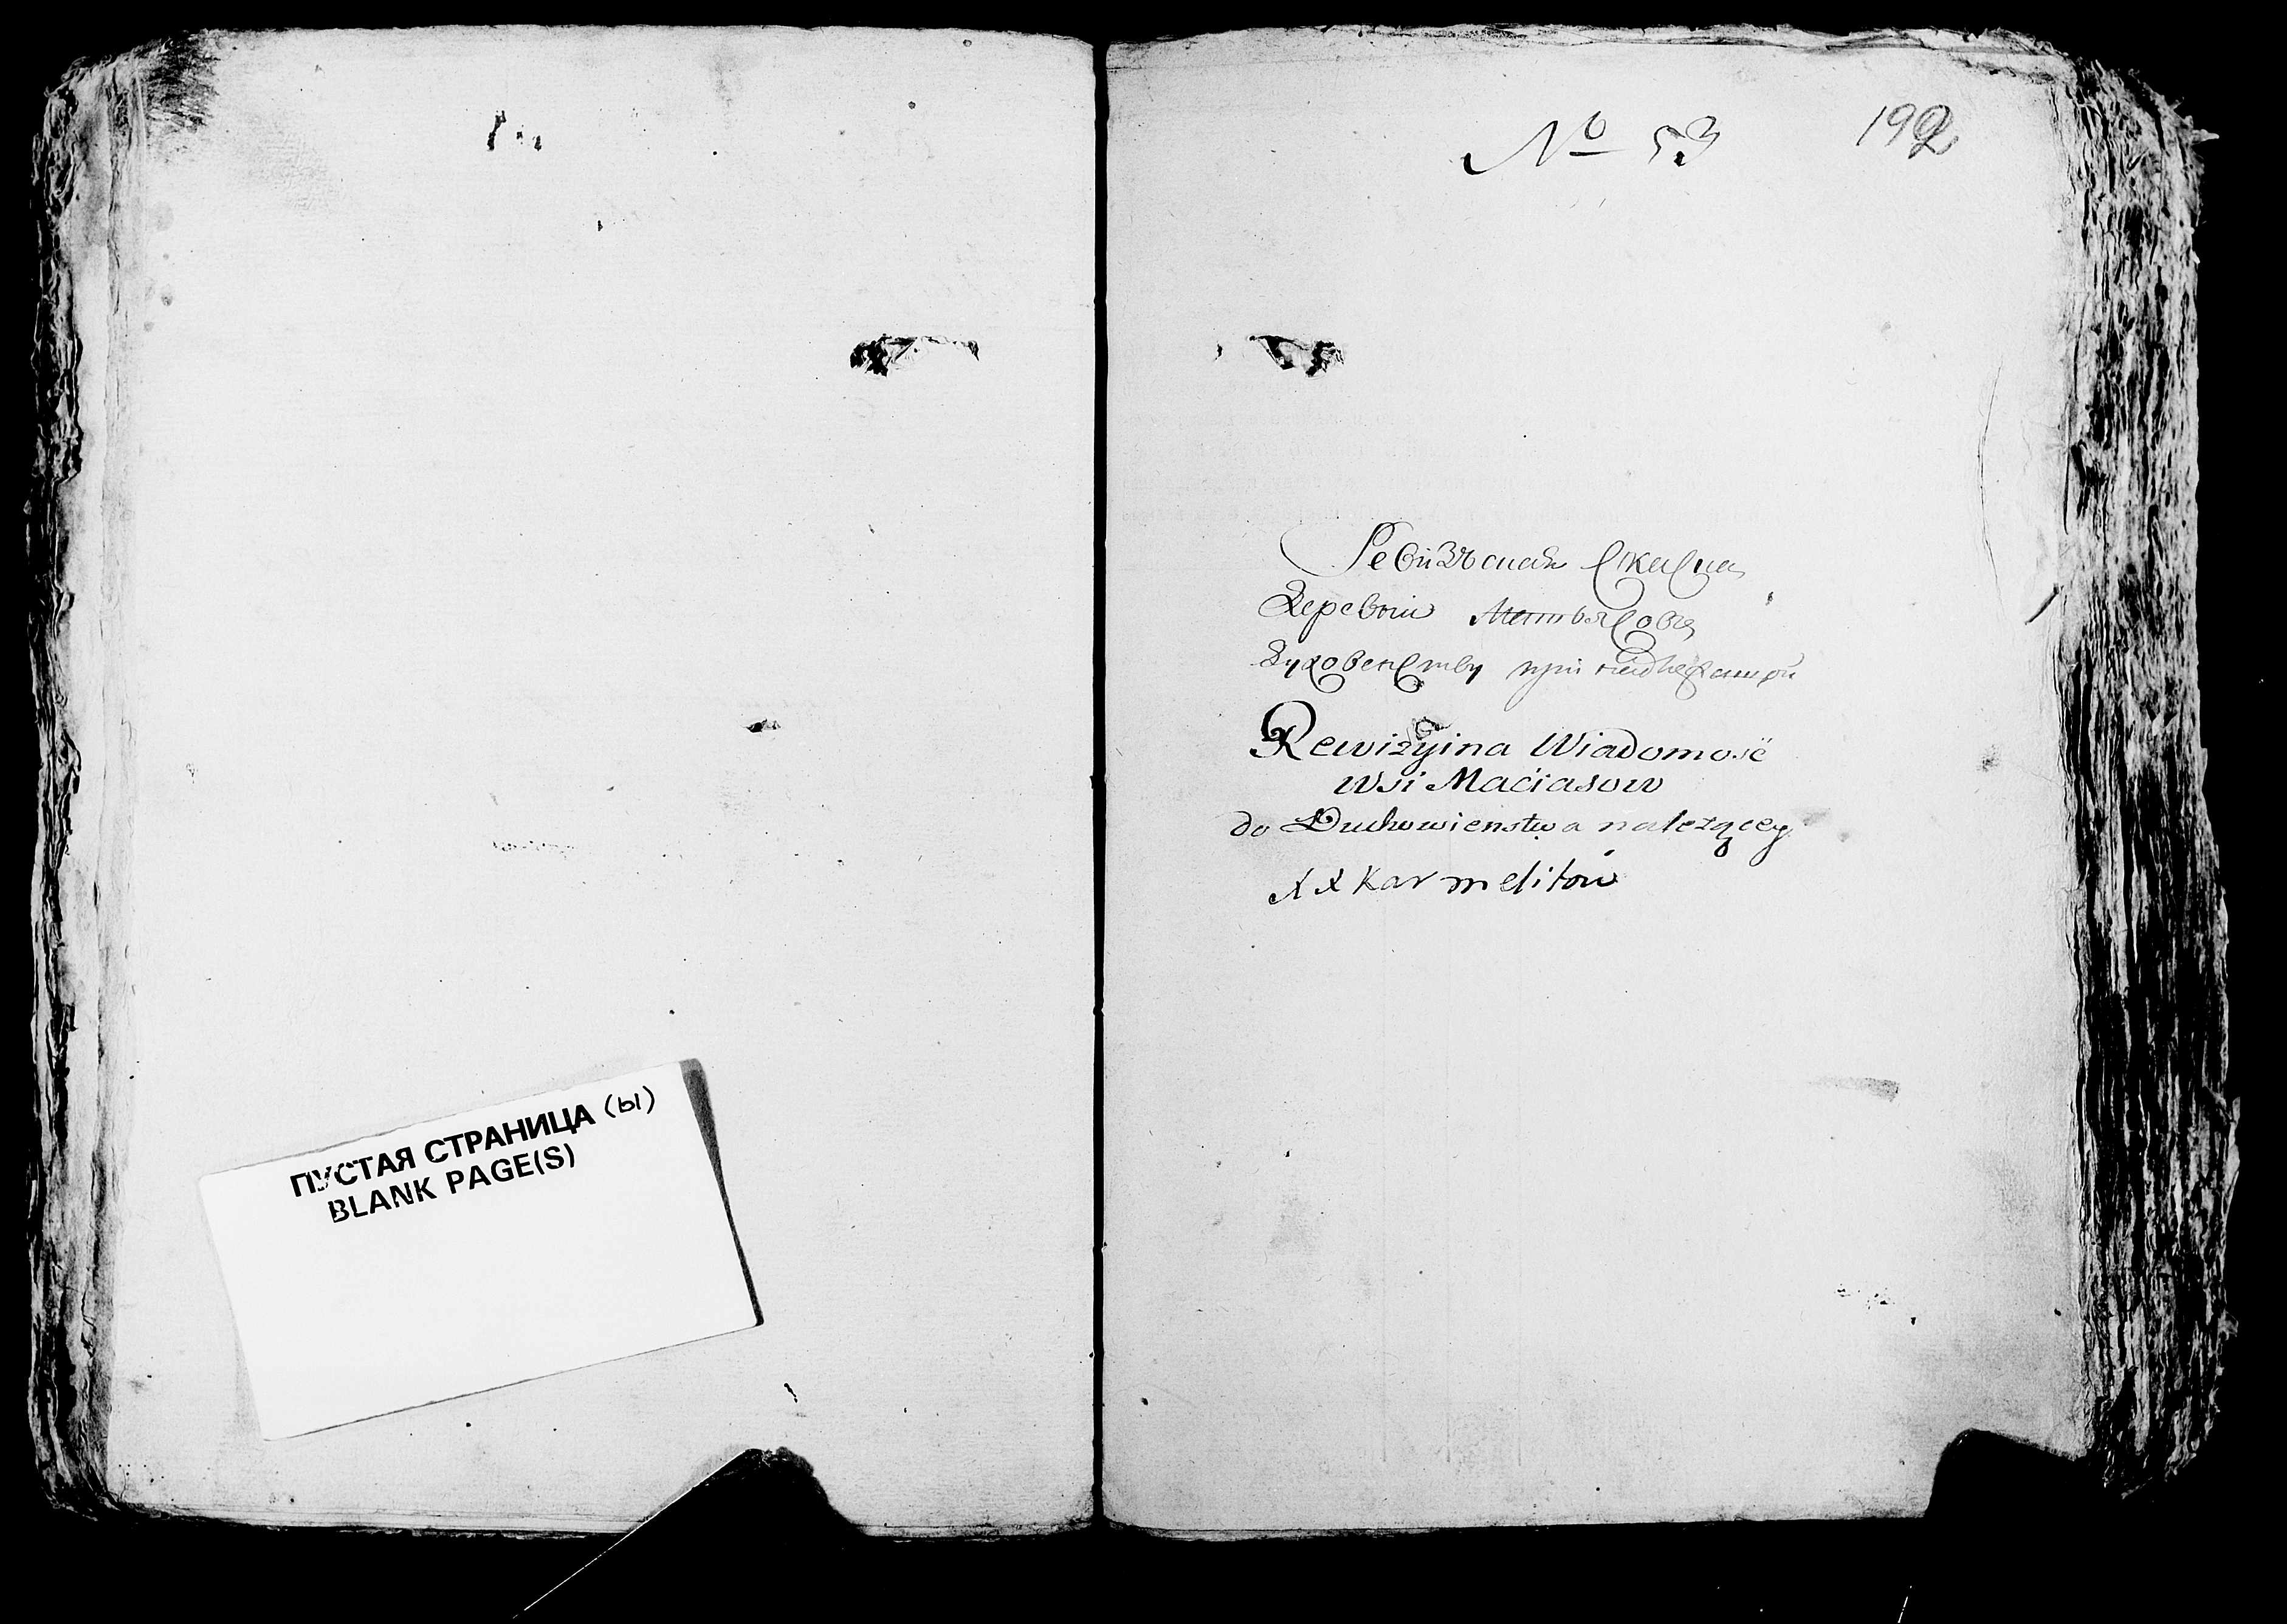 ПУСТАЯ СТРАНИЦА (ы)
BLANK PAGE(S)
№ 53
192
Ревизъская скаска
деревни Матьясовъ
духовенству принадлежащои
Rewizyina Wiadomość
wsi Maciasow
do Duchowienstwa należącey
XX Karmelitow